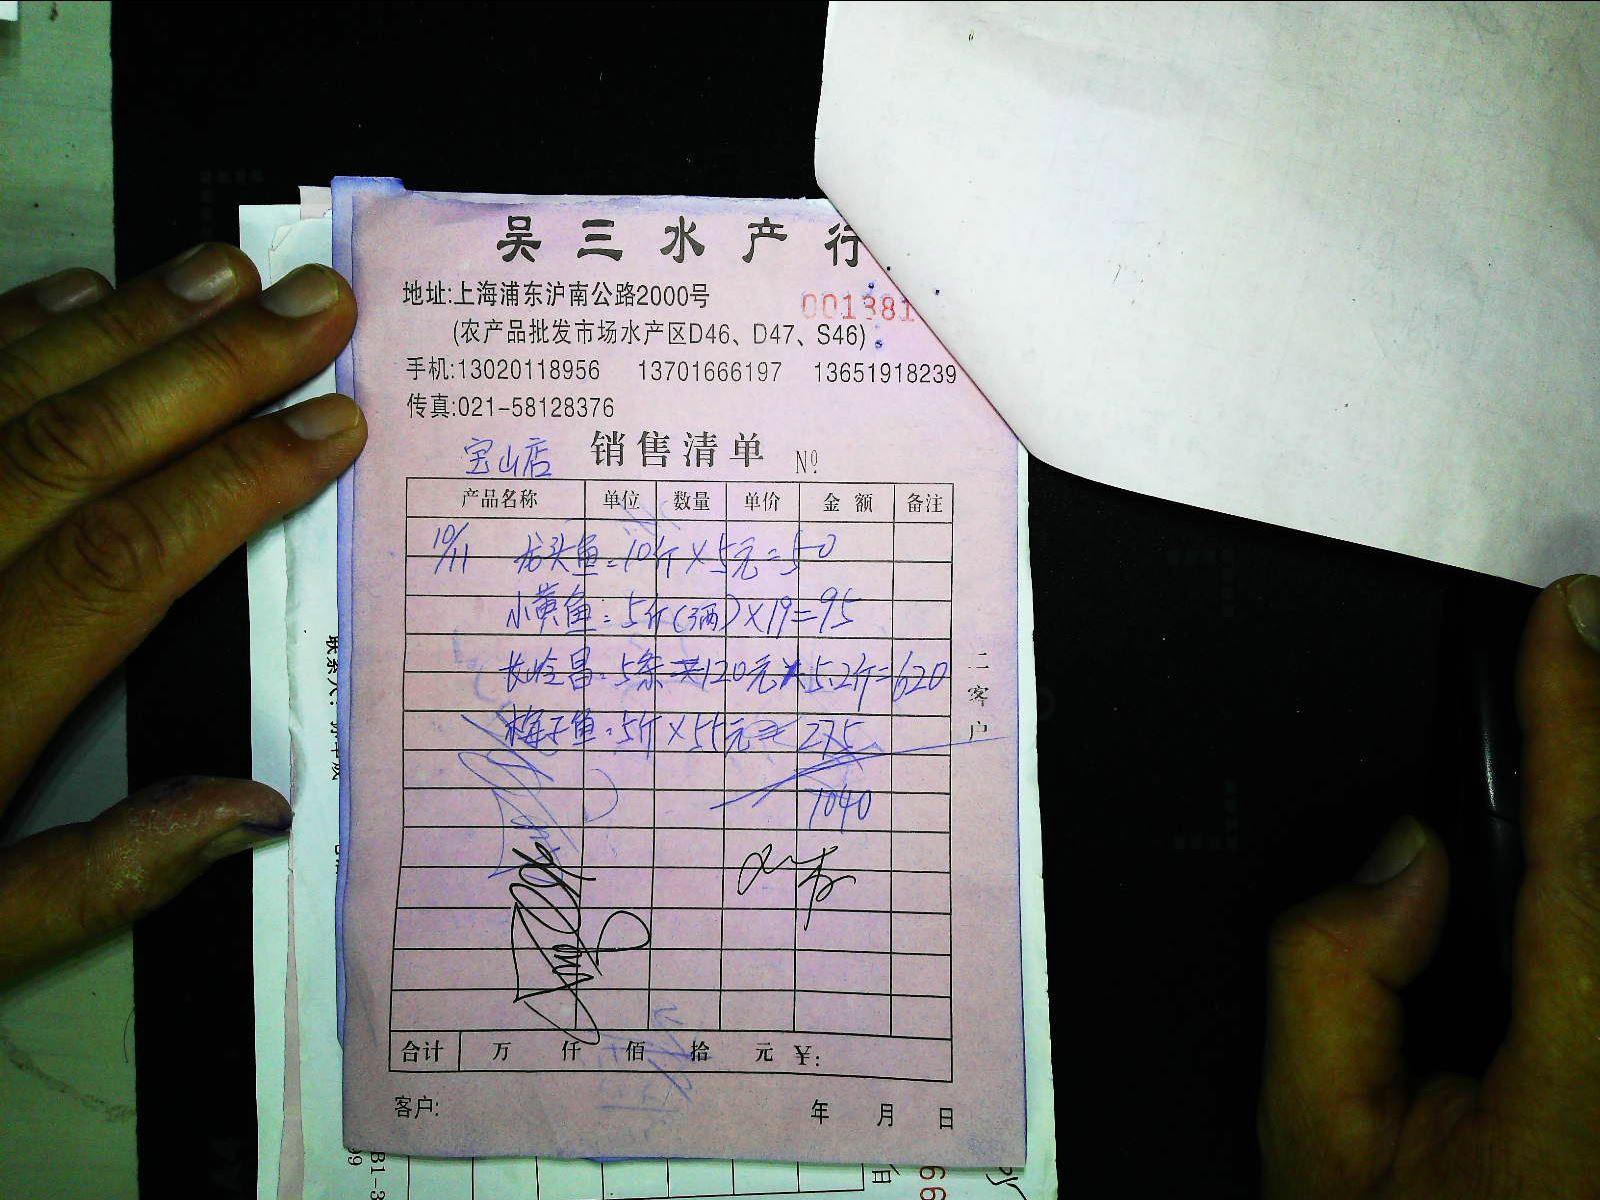 吴三水产行
地址:上海浦东沪南公路2000号
001381
(农产品批发市场水产区D46、D47、S46)
手机:13020118956 13701666197 13651918239
传真:021-58128376
宝山店 销售清单 Nº
产品名称 单位 数量 单价 金额 备注
10/11 龙头鱼:10斤×5元=50
小黄鱼:5斤(3两)×19=95
长岭昌:5条 120元×5.2斤=620
梅子鱼:5斤×55元=275
1040
二客户
合计 万 仟 佰 拾 元 ¥:
客户: 年 月 日
联系人:
月
99